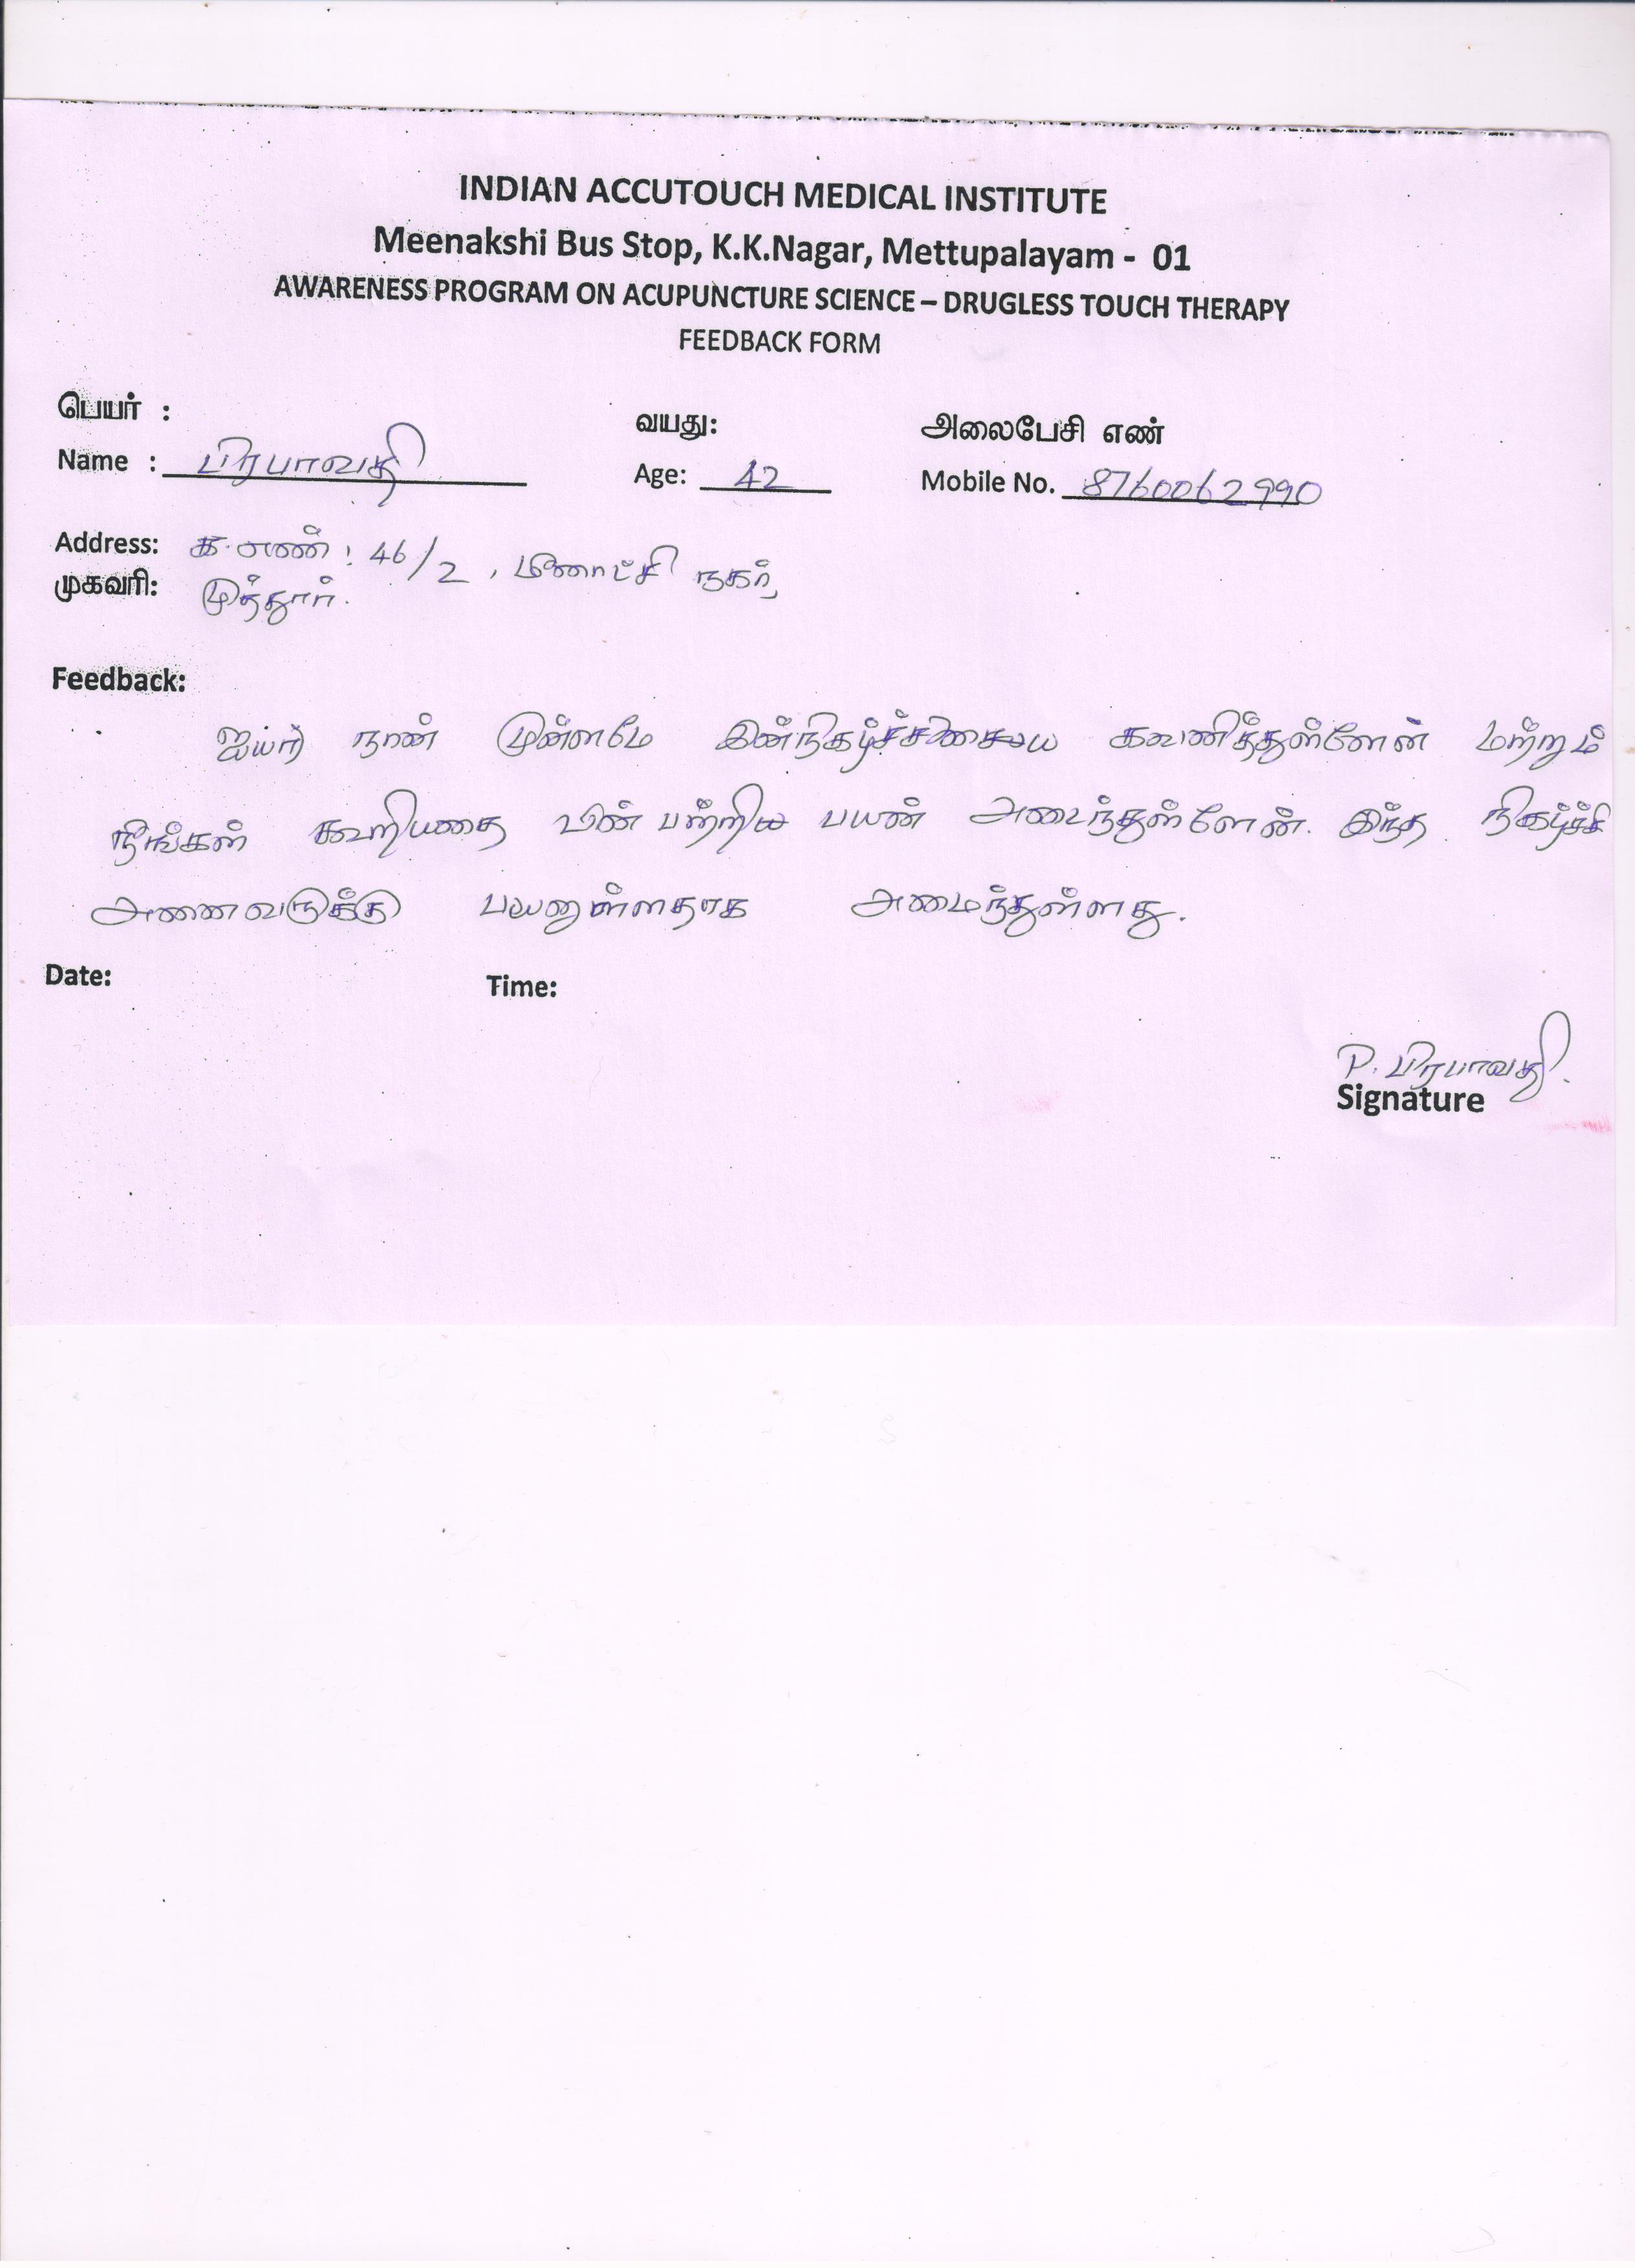 INDIAN ACCUTOUCH MEDICAL INSTITUTE
Meenakshi Bus Stop, K.K.Nagar, Mettupalayam - 01
AWARENESS PROGRAM ON ACUPUNCTURE SCIENCE – DRUGLESS TOUCH THERAPY
FEEDBACK FORM
பெயர் : வயது: அலைபேசி எண்
Name : பிரபாவதி Age: 42 Mobile No. 8760062990
Address: க.எண் : 46/2, மீனாட்சி நகர்,
முகவரி: முத்தூர்.
Feedback:
ஐயா நான் முன்னமே கவனித்துள்ளேன் மற்றும்
நீங்கள் கூறியதை பின்பற்றி பயன் அடைந்துள்ளேன். இந்த நிகழ்ச்சி
அனைவருக்கு பயனுள்ளதாக அமைந்துள்ளது.
Date: Time:
P. பிரபாவதி.
Signature